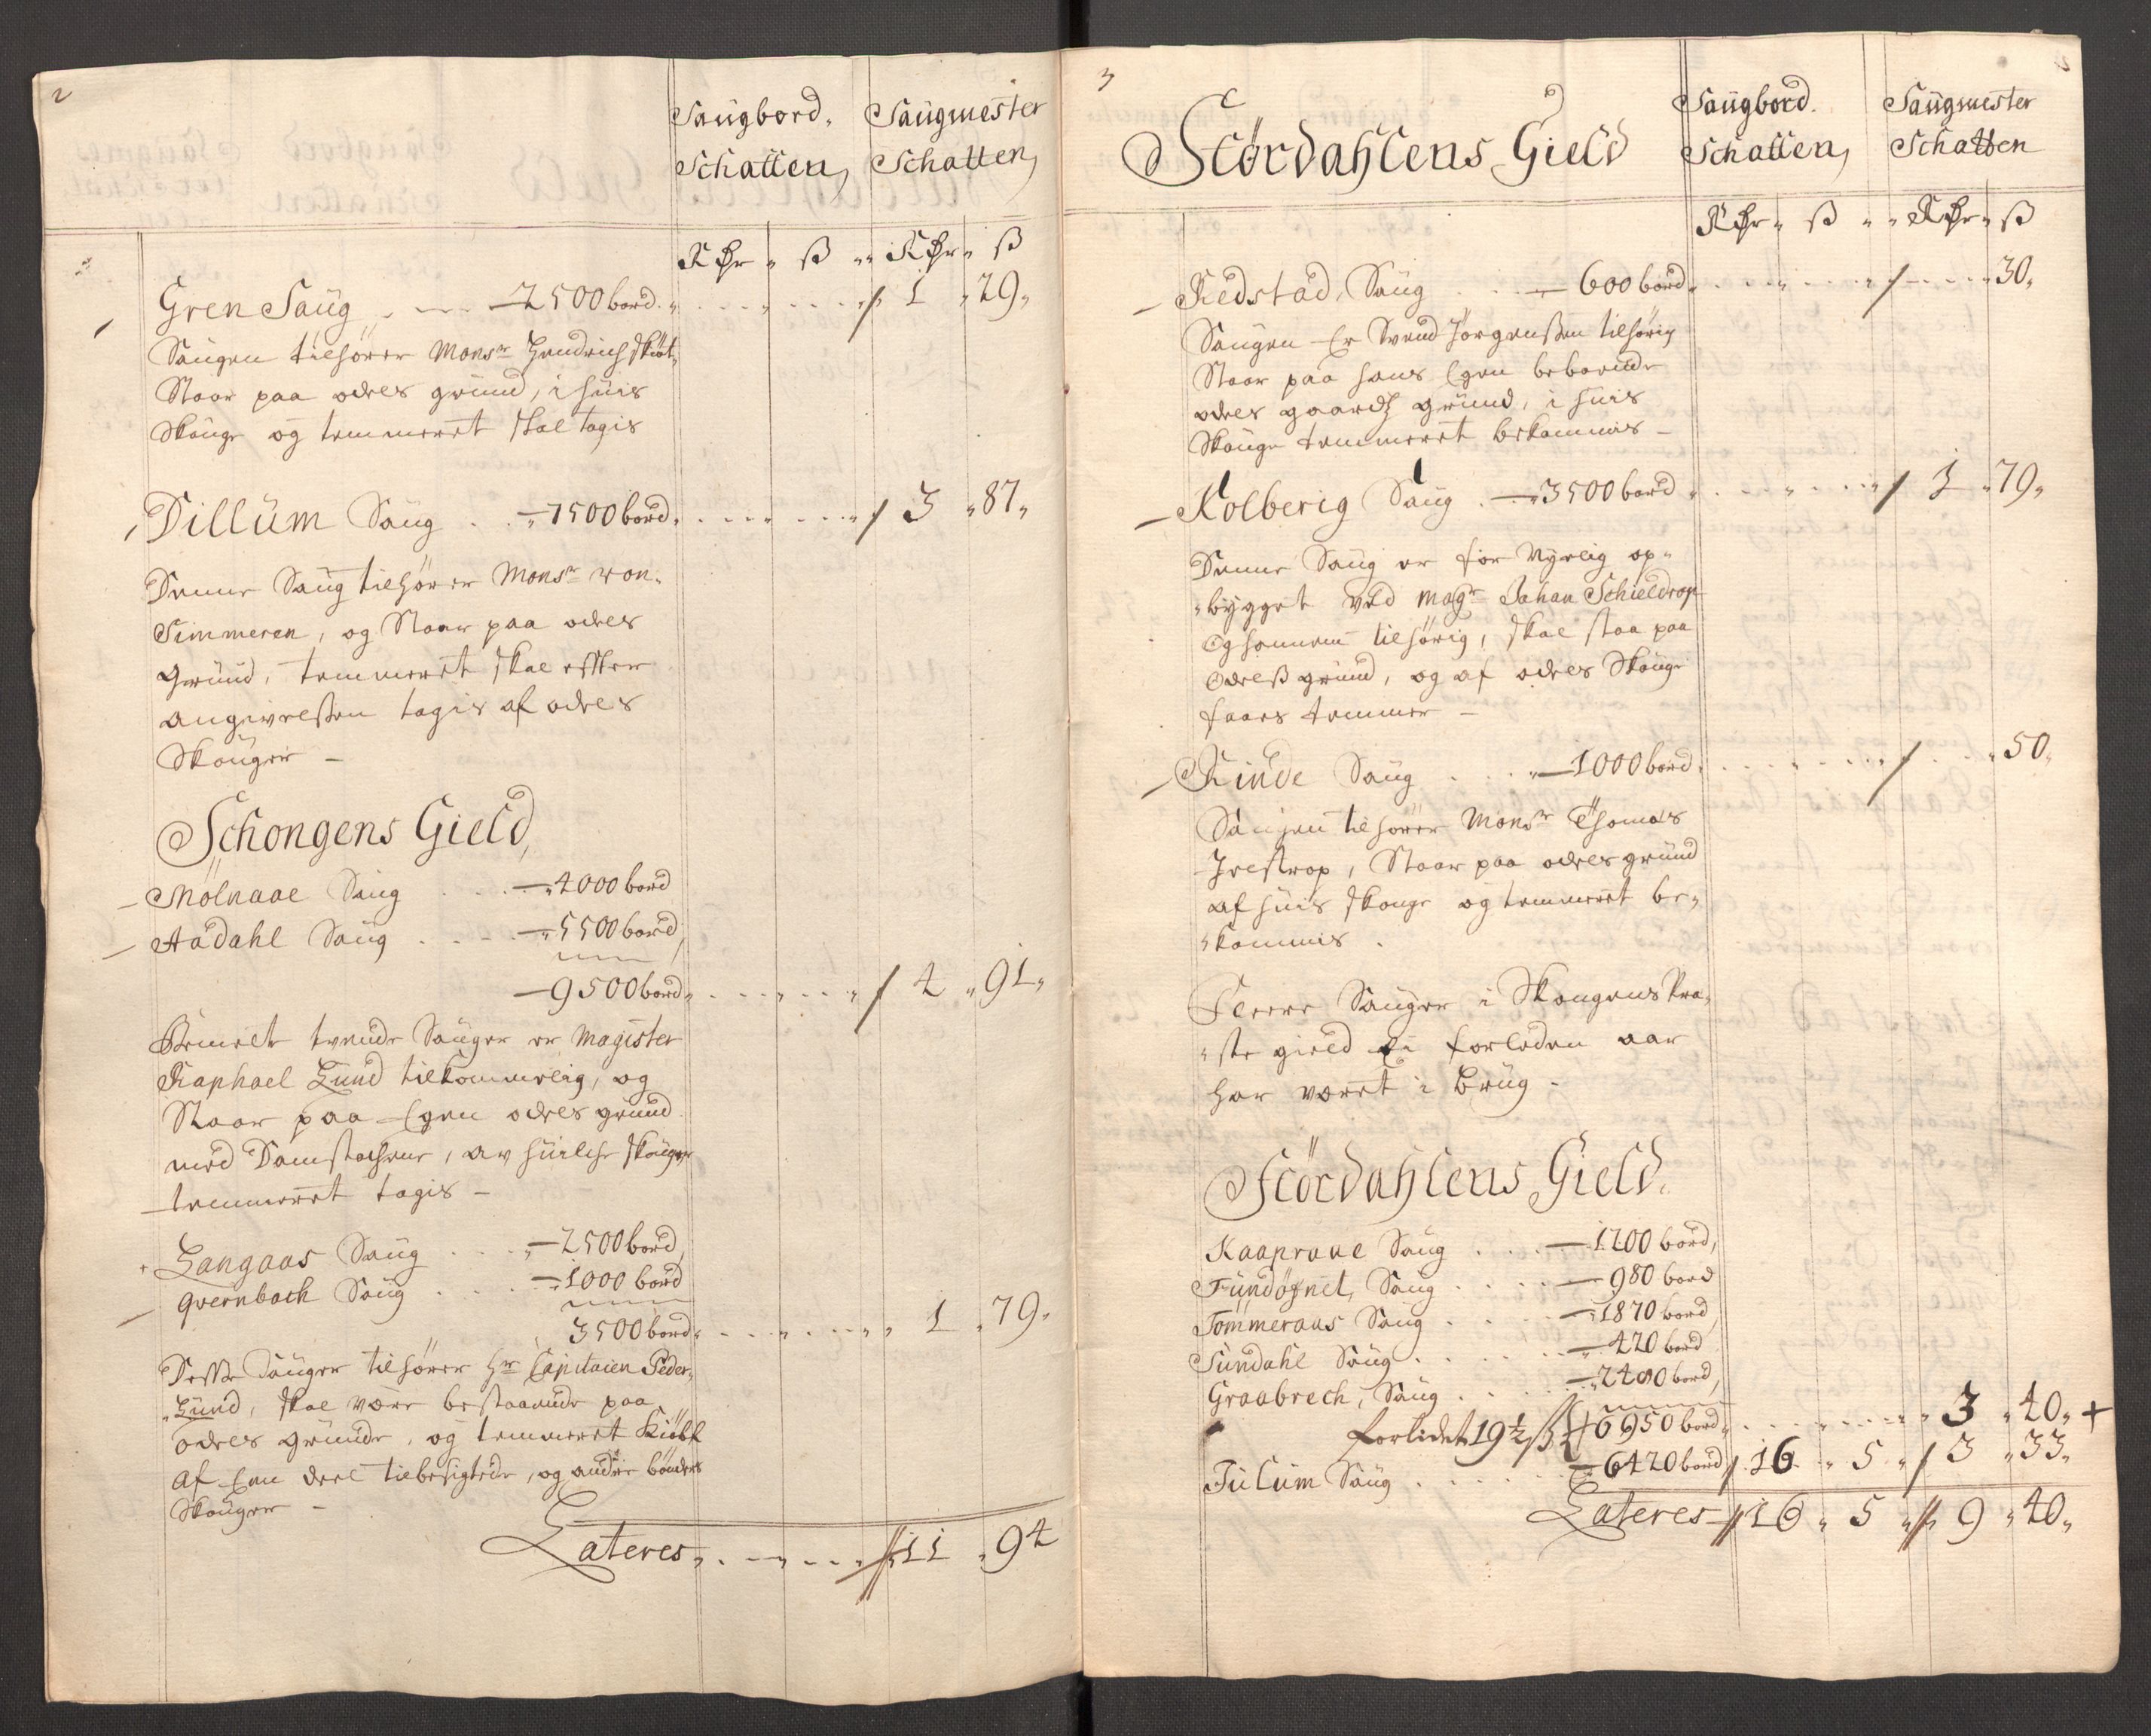 2
Saugbord. Saugmester
Schatten, Schatten,
Rdr ß Rdr ß
Gren Saug - 2500 bord. 1 29
Saugen tilhører Monsr Hendrich Skiøt,
Staar paa odels grund, i huis
Skouge og temmeret skal tagis
Dillum Saug - 7500 bord. 3 87
Denne Saug tilhører Monsr von
Simmeren, og Staar paa odels
Grund, temmeret skal effter
angivelsen tagis af odels
Skouger -
Schongens Gield,
Mölnaae Saug - 4000 bord
Aadahl Saug - 5500 bord
- 9500 bord 4 91
Bemelte tvende Sauger er Magister
Raphael Lund tilkommelig, og
Staar paa Egen odels grund
med Damstochene, av huilche skouge
temmeret tagis -
Langaas Saug - 2500 bord
Qvernbach Saug - 1000 bord
3500 bord 1 79
Desse Sauger tilhører Hr Capitaien Peder
Lund, skal være bestaaende paa
odels grunde, og temmeret Kiøbt
af Een deel tilbesigtede, og andre bønders
Skouger -
Lateres 11 94
3
Stördahlens Gield
Saugbord. Saugmester
Schatten, Schatten
Rdr ß Rdr ß
Redstad, Saug - 600 bord 30
Saugen Er Svend Jørgenssen tilhørig
Staar paa hans Egen beboende
odels gaardz grund, i huis
Skouge temmeret bekommis -
Kolberig Saug - 3500 bord 1 79
Denne Saug er for Nyelig op-
bygget ved Magr Johan Schieldrop
Og hannem tilhørig, skal staa paa
Odelß grund, og af odels Skouge
faaes temmer -
Rinde Saug - 1000 bord 50
Saugen tilhører Monsr Thomas
Irestrop, Staar paa odels grund
af huis skouge og temmeret be-
kommis.
Fleere Sauger i Skongens Præ-
ste gield Ei forleden aar
har været i Brug -
Stördahlens Gield.
Kaapraae Saug - 1200 bord,
Fundøynet, Saug - 980 bord
Tömmeraas Saug - 1870 bord
Sundahl Saug - 420 bord
Graabrech, Saug - 2480 bord,
forlidet 19½ ß 6950 bord 3 40 +
Fulum Saug - 6420 bord 16 5 3 33
Lateres 16 5 9 40